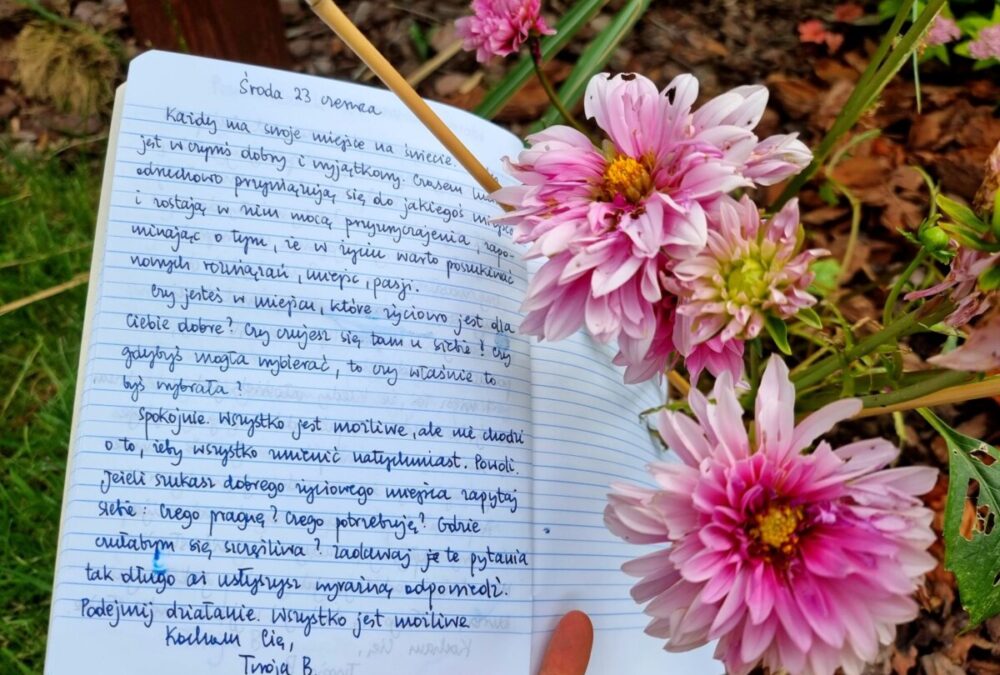 Środa 23 czerwca
Każdy ma swoje miejsce na świecie
jest w czymś dobry i wyjątkowy. Czasem
odruchowo przywiązują się do jakiegoś miejsca
i zostają w nim mocą przyzwyczajenia, zapo-
minając o tym, że w życiu warto poszukiwać
nowych rozwiązań, miejsc, pasji.
Czy jesteś w miejscu, które życiowo jest dla
Ciebie dobre? Czy czujesz się tam u siebie? Czy
gdybyś mogła wybierać, to czy właśnie to
byś wybrała?
Spokojnie. Wszystko jest możliwe, ale nie chodzi
o to, żeby wszystko zmienić natychmiast. Powoli.
Jeżeli szukasz dobrego życiowego miejsca zapytaj
siebie: Czego pragnę? Czego potrzebuję? Gdzie
czułabym się szczęśliwa? Zadawaj te pytania
tak długo aż usłyszysz wyraźną odpowiedź.
Podejmij działanie. Wszystko jest możliwe.
Kocham Cię,
Twoja B.